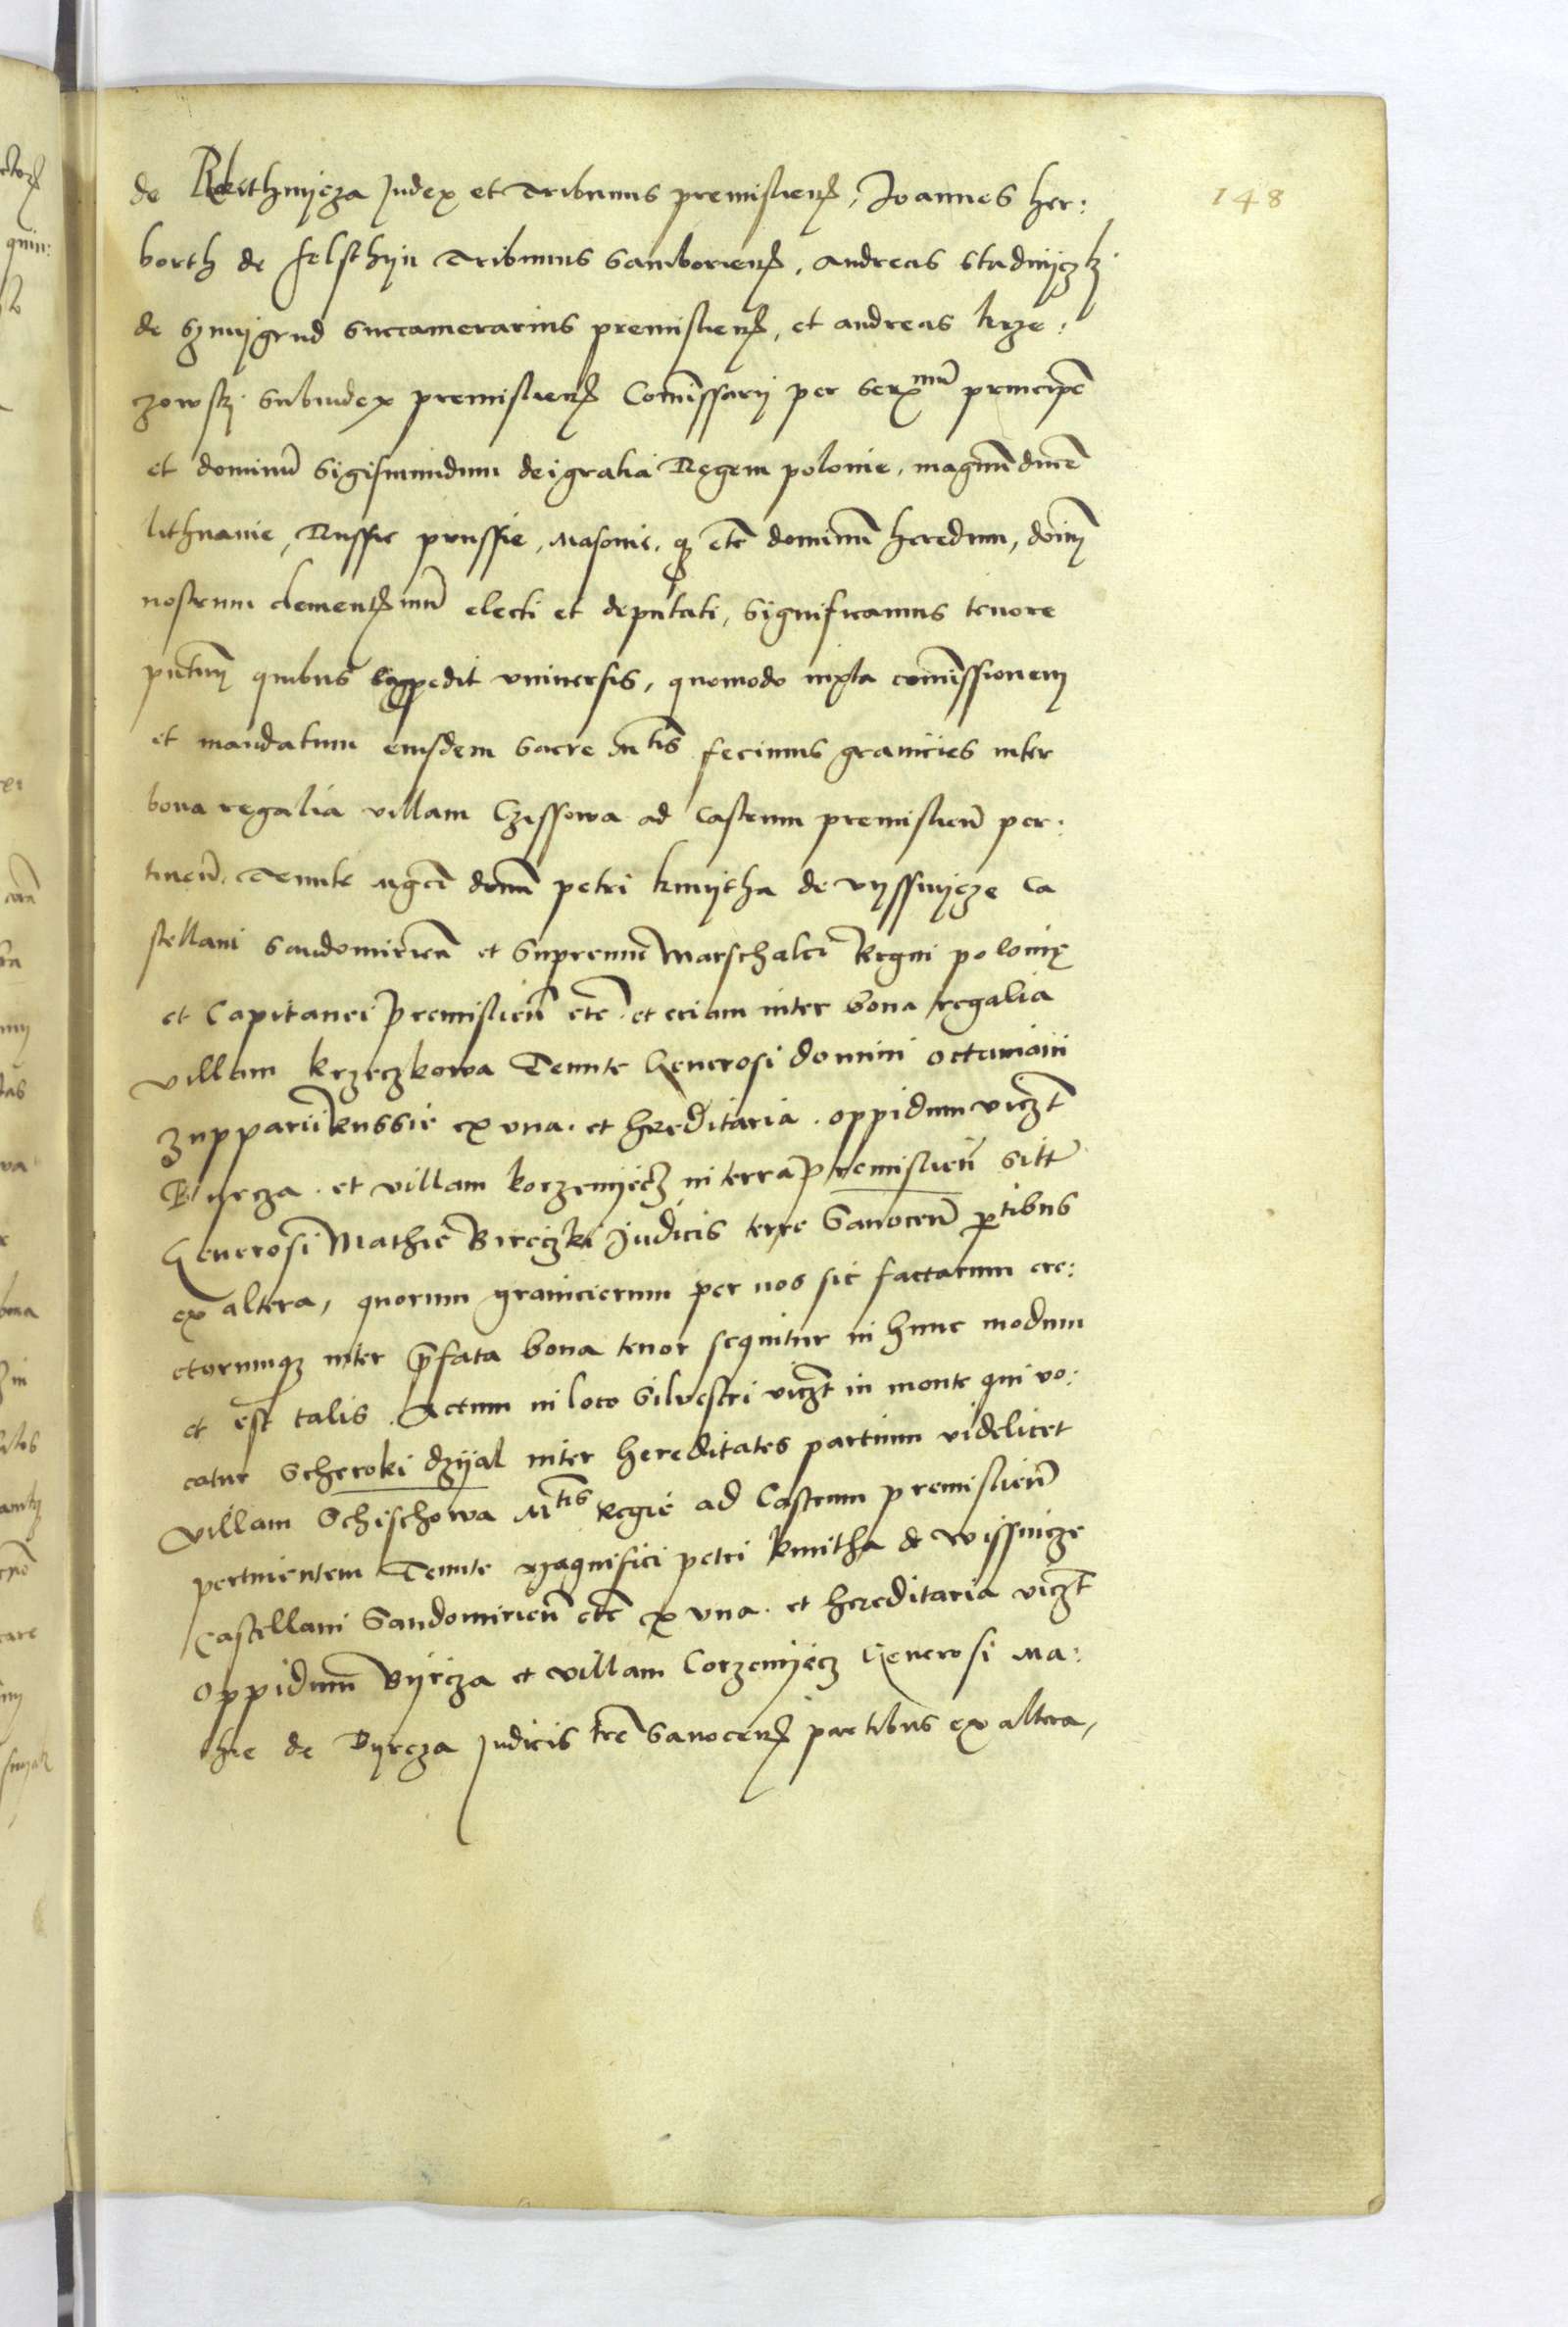 148
de Rokithnijcza Judex et Tribunus premislien̄, Joannes her:
borth de felsthijn Tribunus Samborien̄, Andreas Stadnijczkj
de Szmijgrud Succamerarius premislien̄, et andreas krze:
czowskj Subiudex premislien̄ Com̄issarij per Ser^mū principē
et dominū Sigismundum dei gratia Regem polonie, magnū ducē
lithuanie, Russie prussie, Masouie, qʒ etc̄ dominū heredum, dom̄
nostrum clements̄mū electi et deputati, Significamus tenore
pn̄tium quibus expedit vniuersis, quomodo iuxta com̄issionem
et mandatum eiusdem Sacre M^tis fecimus granicies inter
bona regalia villam Czissowa ad Castrum premislien̄ per:
tinen̄. Tenute Mgc̄i dom̄ petri kmijtha de vyssnijcze Ca
stellani Sandomirien̄ et Supremi Marschalci Regni polonię
et Capitanei premislien̄ etc̄. et eciam inter bona regalia
villam krzeczkowa Tenute Generosi domini octauiani
Zupparij Russie ex vna. et hereditaria. oppidum viczt̄
Byrcza. et villam korzenijecz in terra premislien̄ Sitt̄
Generosi Mathie Bireczki Judicis terre Sanocen̄ p̱tibus
ex altera, quorum granicierum per nos sic factarum ere:
ctorumqʒ inter p̄fata bona tenor sequitur in hunc modum
et est talis. Actum in loco Siluestri viczt̄ in monte qui vo:
catur Scheroki dzijal inter hereditates partium videlicet
villam Schischowa M^tis Regie ad Castrum premislien̄
pertinentem Tenute Magnifici petri kmitha de wissnicze
Castellani Sandomirien̄ etc̄ ex vna. et hereditaria viczt̄
oppidum Byrcza et villam Corzenijecz Generosi Ma:
thie de Byrcza Judicis tre̅ Sanocen̄ partibus ex altera,